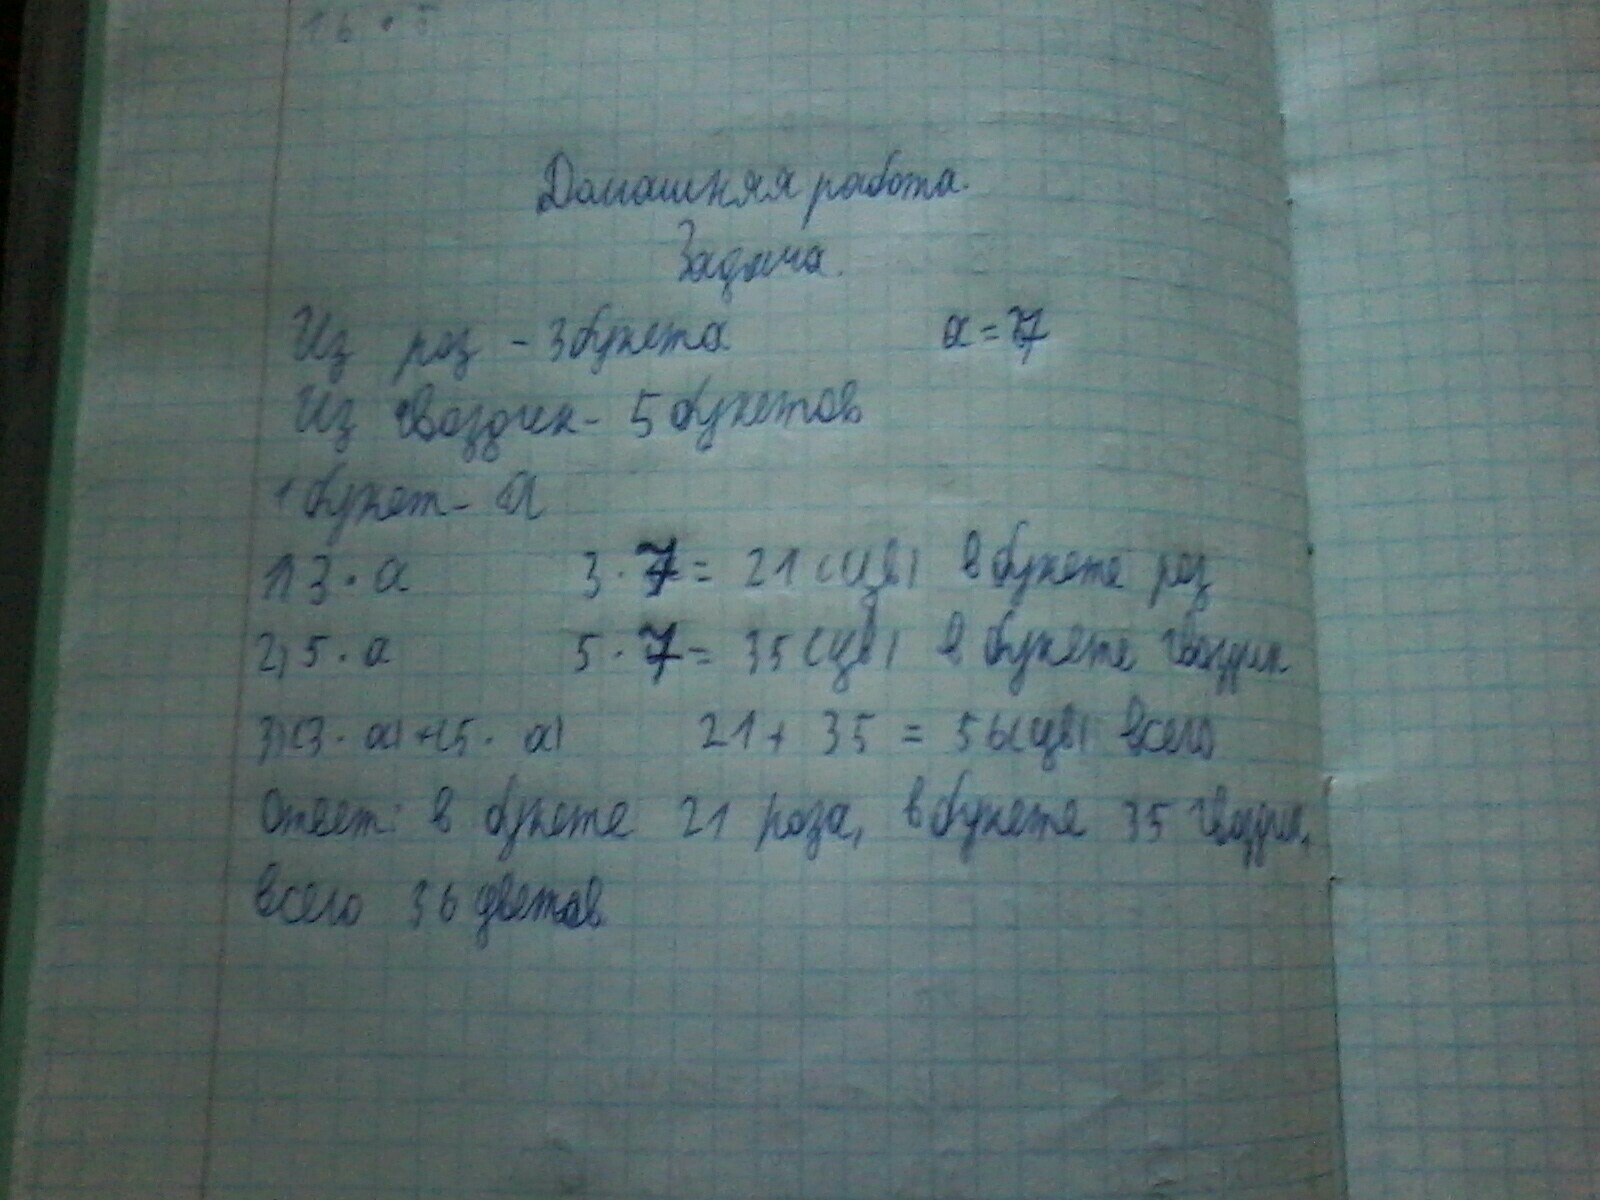 16 · 5
Домашняя работа.
Задача.
Из роз - 3 букета а = 7
Из гвоздик - 5 букетов
1 букет - а
1) 3 · а 3 · 7 = 21 (цв) в букете роз
2) 5 · а 5 · 7 = 35 (цв) в букете гвоздик
3) (3 · а) + (5 · а) 21 + 35 = 56 (цв) всего
Ответ: в букете 21 роза, в букете 35 гвоздик,
всего 36 цветов.